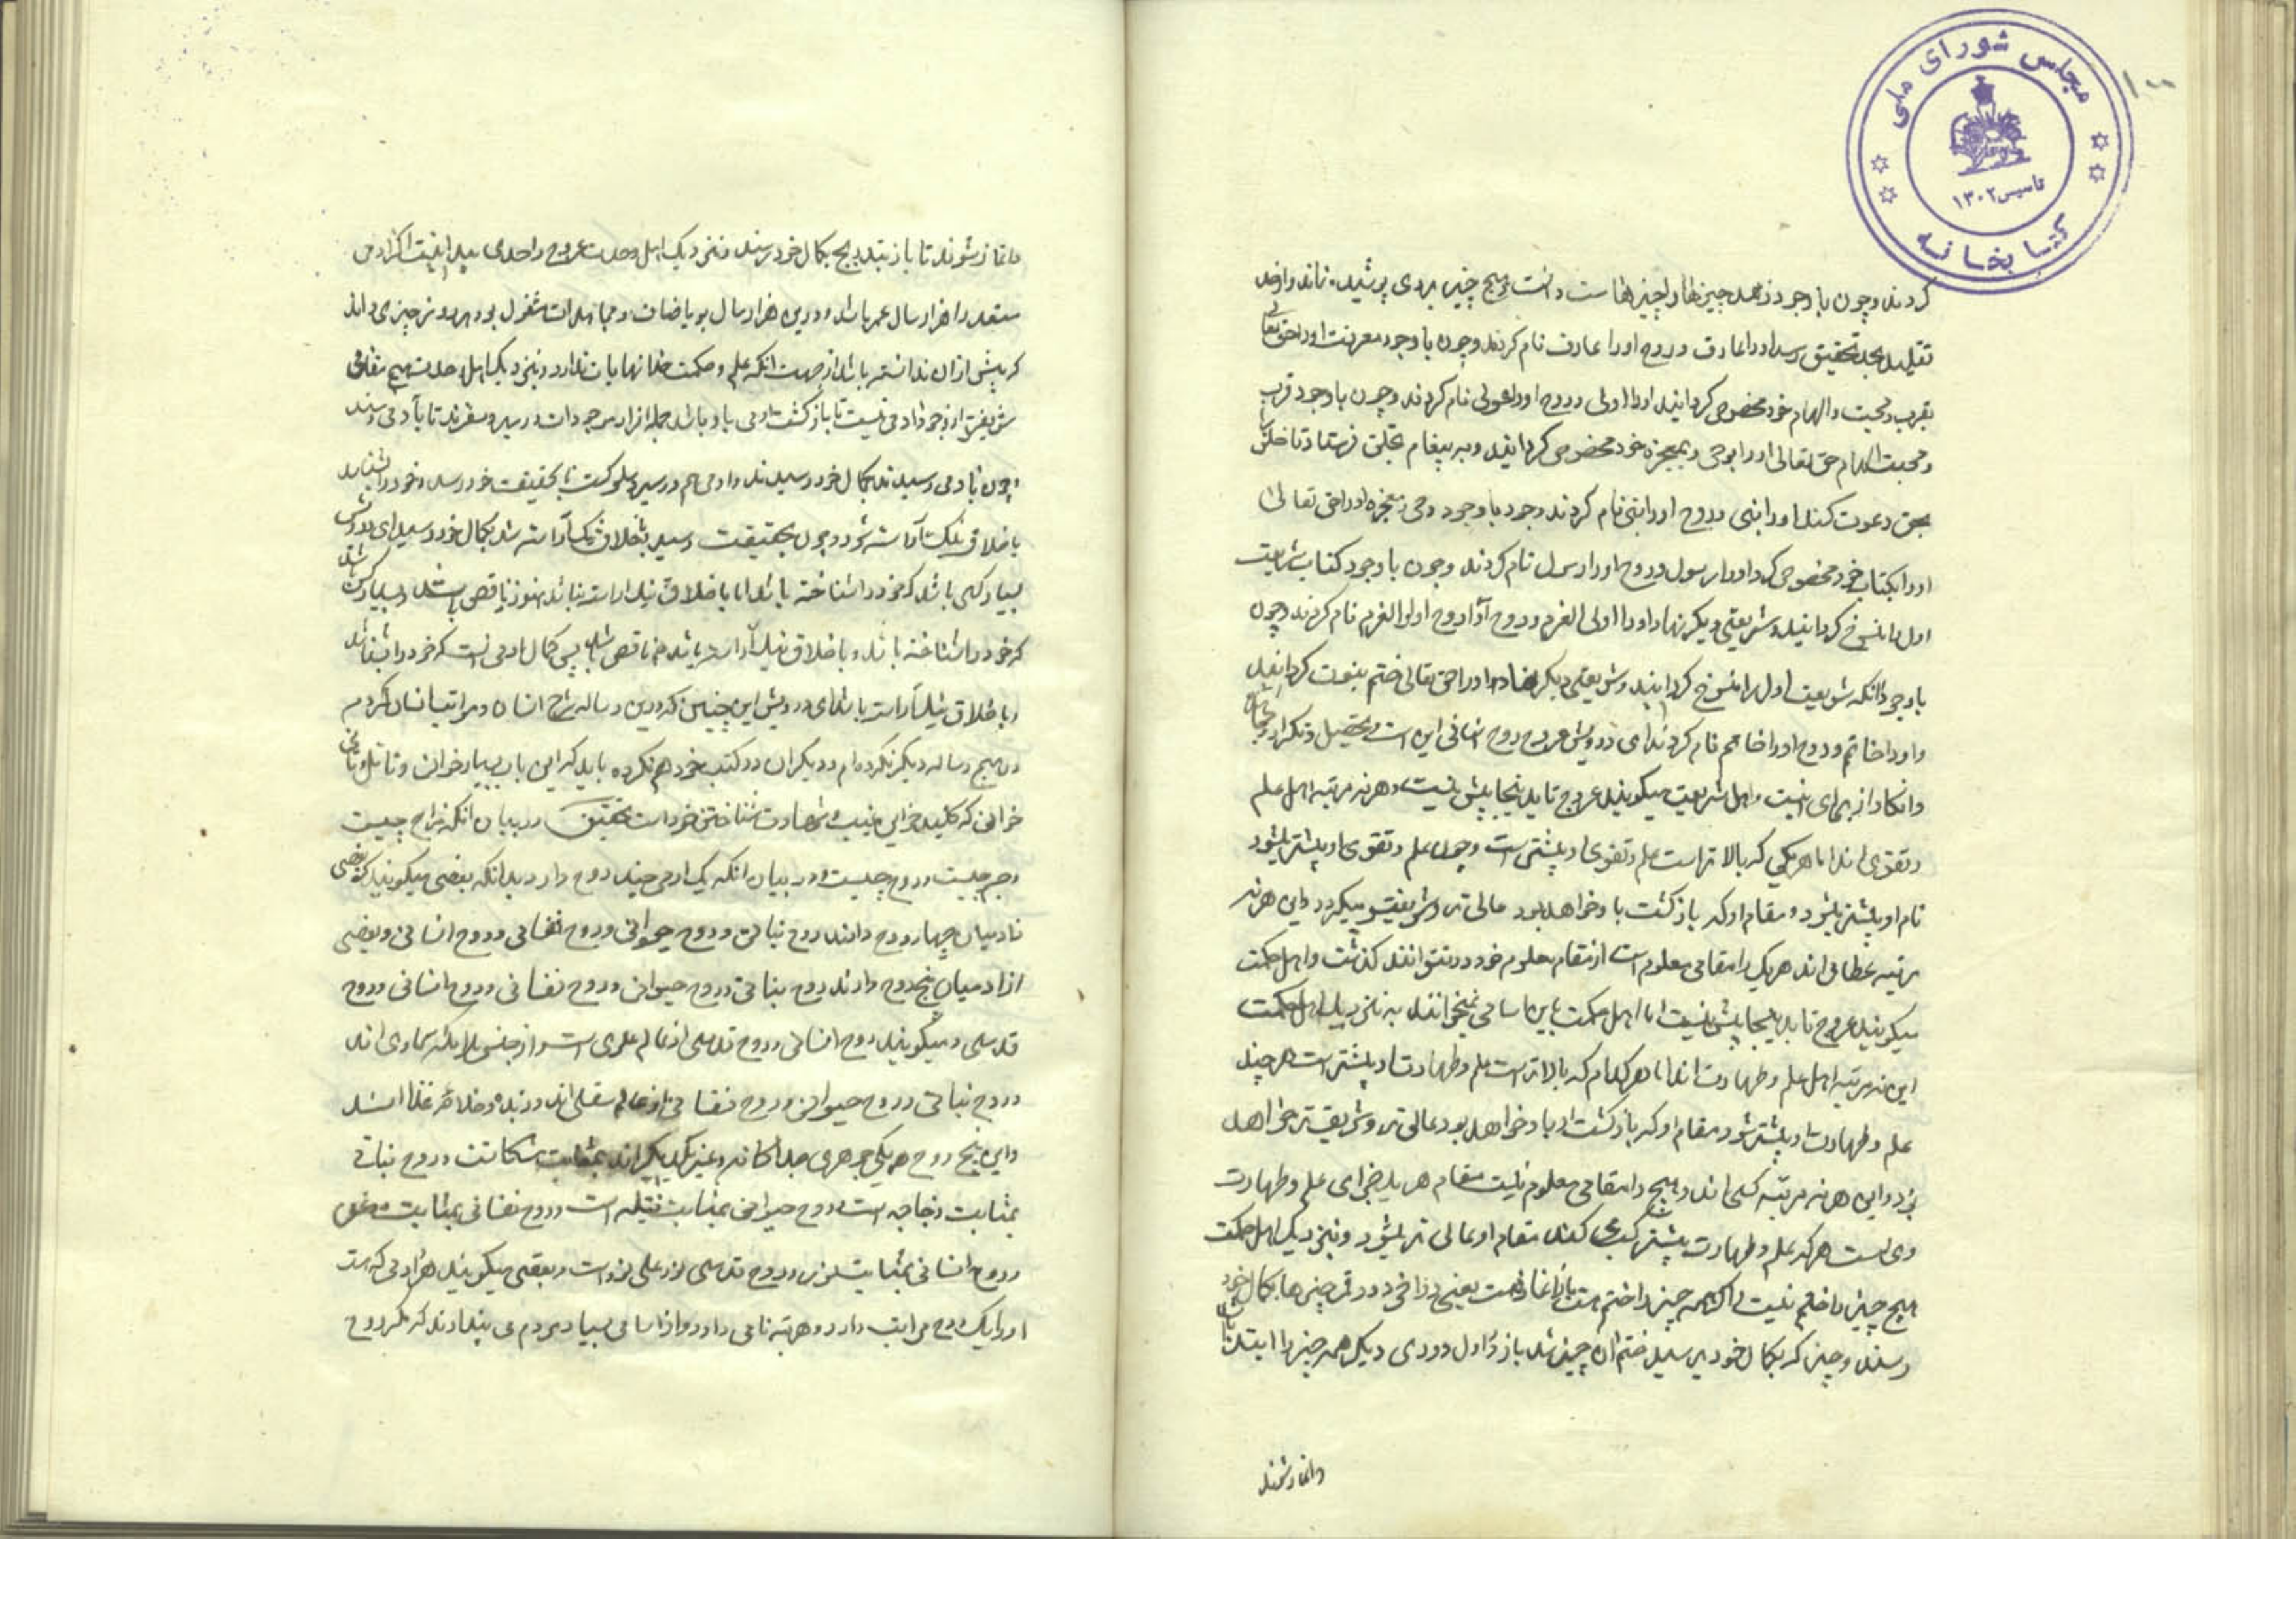 مجلس شورای ملی
کتابخانه
تاسیس ۱۳۰۲
۱۰۰
کردند و چون با وجود زهد چیزها را چیزها است دانست و هیچ چیز بروی پوشیده نماند و از حد
تقلید بحد تحقیق رسید او را عارف و روح او را عارف نام کردند و چون با وجود معرفت او را حق تعالی
بقرب و محبت و الهام خود مخصوص گردانید او را ولی و روح او را ولی نام کردند و چون با وجود قرب
و محبت و الهام حق تعالی او را بوحی و بمعجزه خود مخصوص گردانید و به پیغام بخلق فرستاد تا خلق را
بحق دعوت کند او را نبی و روح او را نبی نام کردند و چون با وجود وحی و معجزه او را حق تعالی
او را بکتاب خود مخصوص کرد او را رسول و روح او را رسول نام کردند و چون با وجود کتاب شریعت
اول را منسوخ گردانید و شریعتی دیگر نهاد او را اولی العزم و روح او را روح اولوالعزم نام کردند و چون
با وجود آنکه شریعت اول را منسوخ گردانید و شریعتی دیگر نهاد او را حق تعالی ختم نبوت گردانید
و او را خاتم و روح او را خاتم نام کردند ای درویش عروج روح انسانی این است
اینست و اهل شریعت میگویند عروج تا بدینجا بیش نیست و هر نه مرتبه اهل علم
و تقوی اند اما هر یکی که بالاتر است علم و تقوی او بیشتر است و چون علم و تقوی او بیشتر میشود
نام او بیشتر میشود و مقام او که بازگشت باو خواهد بود عالی تر و شریفتر میگردد و این هر نه
مرتبه عطائی اند هر یک را مقامی معلوم است از مقام معلوم خود در نتوانند گذشت و اهل حکمت
میگویند عروج تا بدینجا بیش نیست اما اهل حکمت باین اسامی نمیخوانند به نزدیک اهل حکمت
این نه مرتبه اهل علم و طهارت اند اما هر کدام که بالاتر است علم و طهارت او بیشتر است هر چند
علم و طهارت او بیشتر شود مقام او که بازگشت او باو خواهد بود عالی تر و شریفتر خواهد
بود و این هر نه مرتبه کسبی اند و هیچ را مقامی معلوم نیست مقام هر یک جزای علم و طهارت
وی است هر که علم و طهارت بیشتر کسب کند مقام او عالی تر میشود و بنزدیک اهل حکمت
هیچ چیز را ختم نیست اگر همه چیز را ختم هست باز آغاز هست یعنی در آخر دور قمر چیزها بکمال خود
رسند و چیزی که بکمال خود رسید ختم آن چیز شد باز در اول دوری دیگر همه چیز را ابتدا باشد
و آغاز شوند
و آغاز شوند تا باز بتدریج بکمال خود رسند و بنزدیک اهل وحدت عروج را حدی پیدا نیست اگر آدمی
مستعد را هزار سال عمر باشد و درین هزار سال بریاضات و مجاهدات مشغول بود هر روز چیزی داند
که پیش از آن ندانسته باشد از جهت آنکه علم و حکمت خدا نهایات ندارد و بنزدیک اهل وحدت هیچ مقامی
شریفتر از وجود آدمی نیست تا بازگشت آدمی باو باشد جمله افراد موجودات در سیر و سفرند تا بآدمی رسند
و چون بآدمی رسیدند بکمال خود رسیدند و آدمی هم در سیر و سلوک است تا بحقیقت خود رسد و خود را بشناسد
باخلاق نیک آراسته شود و چون بحقیقت رسید باخلاق نیک آراسته شد بکمال خود رسید ای درویش
بسیار کس باشد که خود را شناخته باشد اما باخلاق نیک آراسته نباشد هنوز ناقص باشد و بسیار کس باشد
که خود را شناخته باشد و باخلاق نیک آراسته باشد هم ناقص باشد پس کمال آدمی آنست که خود را بشناسد
و باخلاق نیک آراسته باشد ای درویش این چنین که درین رساله شرح انسان و مراتب انسان کردم
در هیچ رساله دیگر نکرده ام و دیگران در کتب خود هم نکرده باید که این باب بسیار خوانی و تامل
خوانی که کلید خزاین غیب و شهادت شناختن خود است بتحقیق در بیان آنکه مزاج چیست
و جسم چیست و روح چیست و در بیان آنکه یک آدمی چند روح دارد بدانکه بعضی میگویند که بعضی
از آدمیان چهار روح دارند روح نباتی و روح حیوانی و روح نفسانی و روح انسانی و بعضی
از آدمیان پنج روح دارند روح نباتی و روح حیوانی و روح نفسانی و روح انسانی و روح
قدسی و میگویند روح انسانی و روح قدسی از عالم علوی است و از جنس ملایکه سماوی اند
و روح نباتی و روح حیوانی و روح نفسانی از عالم سفلی اند و زبده و خلاصه غذا اند
و این پنج روح هر یکی جوهری جداگانه و غیر یکدیگر اند بمثابت مشکاتست و روح نباتی
بمثابت زجاجه است و روح حیوانی بمثابت فتیله است و روح نفسانی بمثابت روغن
و روح انسانی بمثابت نور و روح قدسی نور علی نور است و بعضی میگویند هر آدمی که هست
او را یک روح مراتب دارد و هر مرتبه نامی دارد و از اسامی بسیار مردم می پندارند که مگر روح